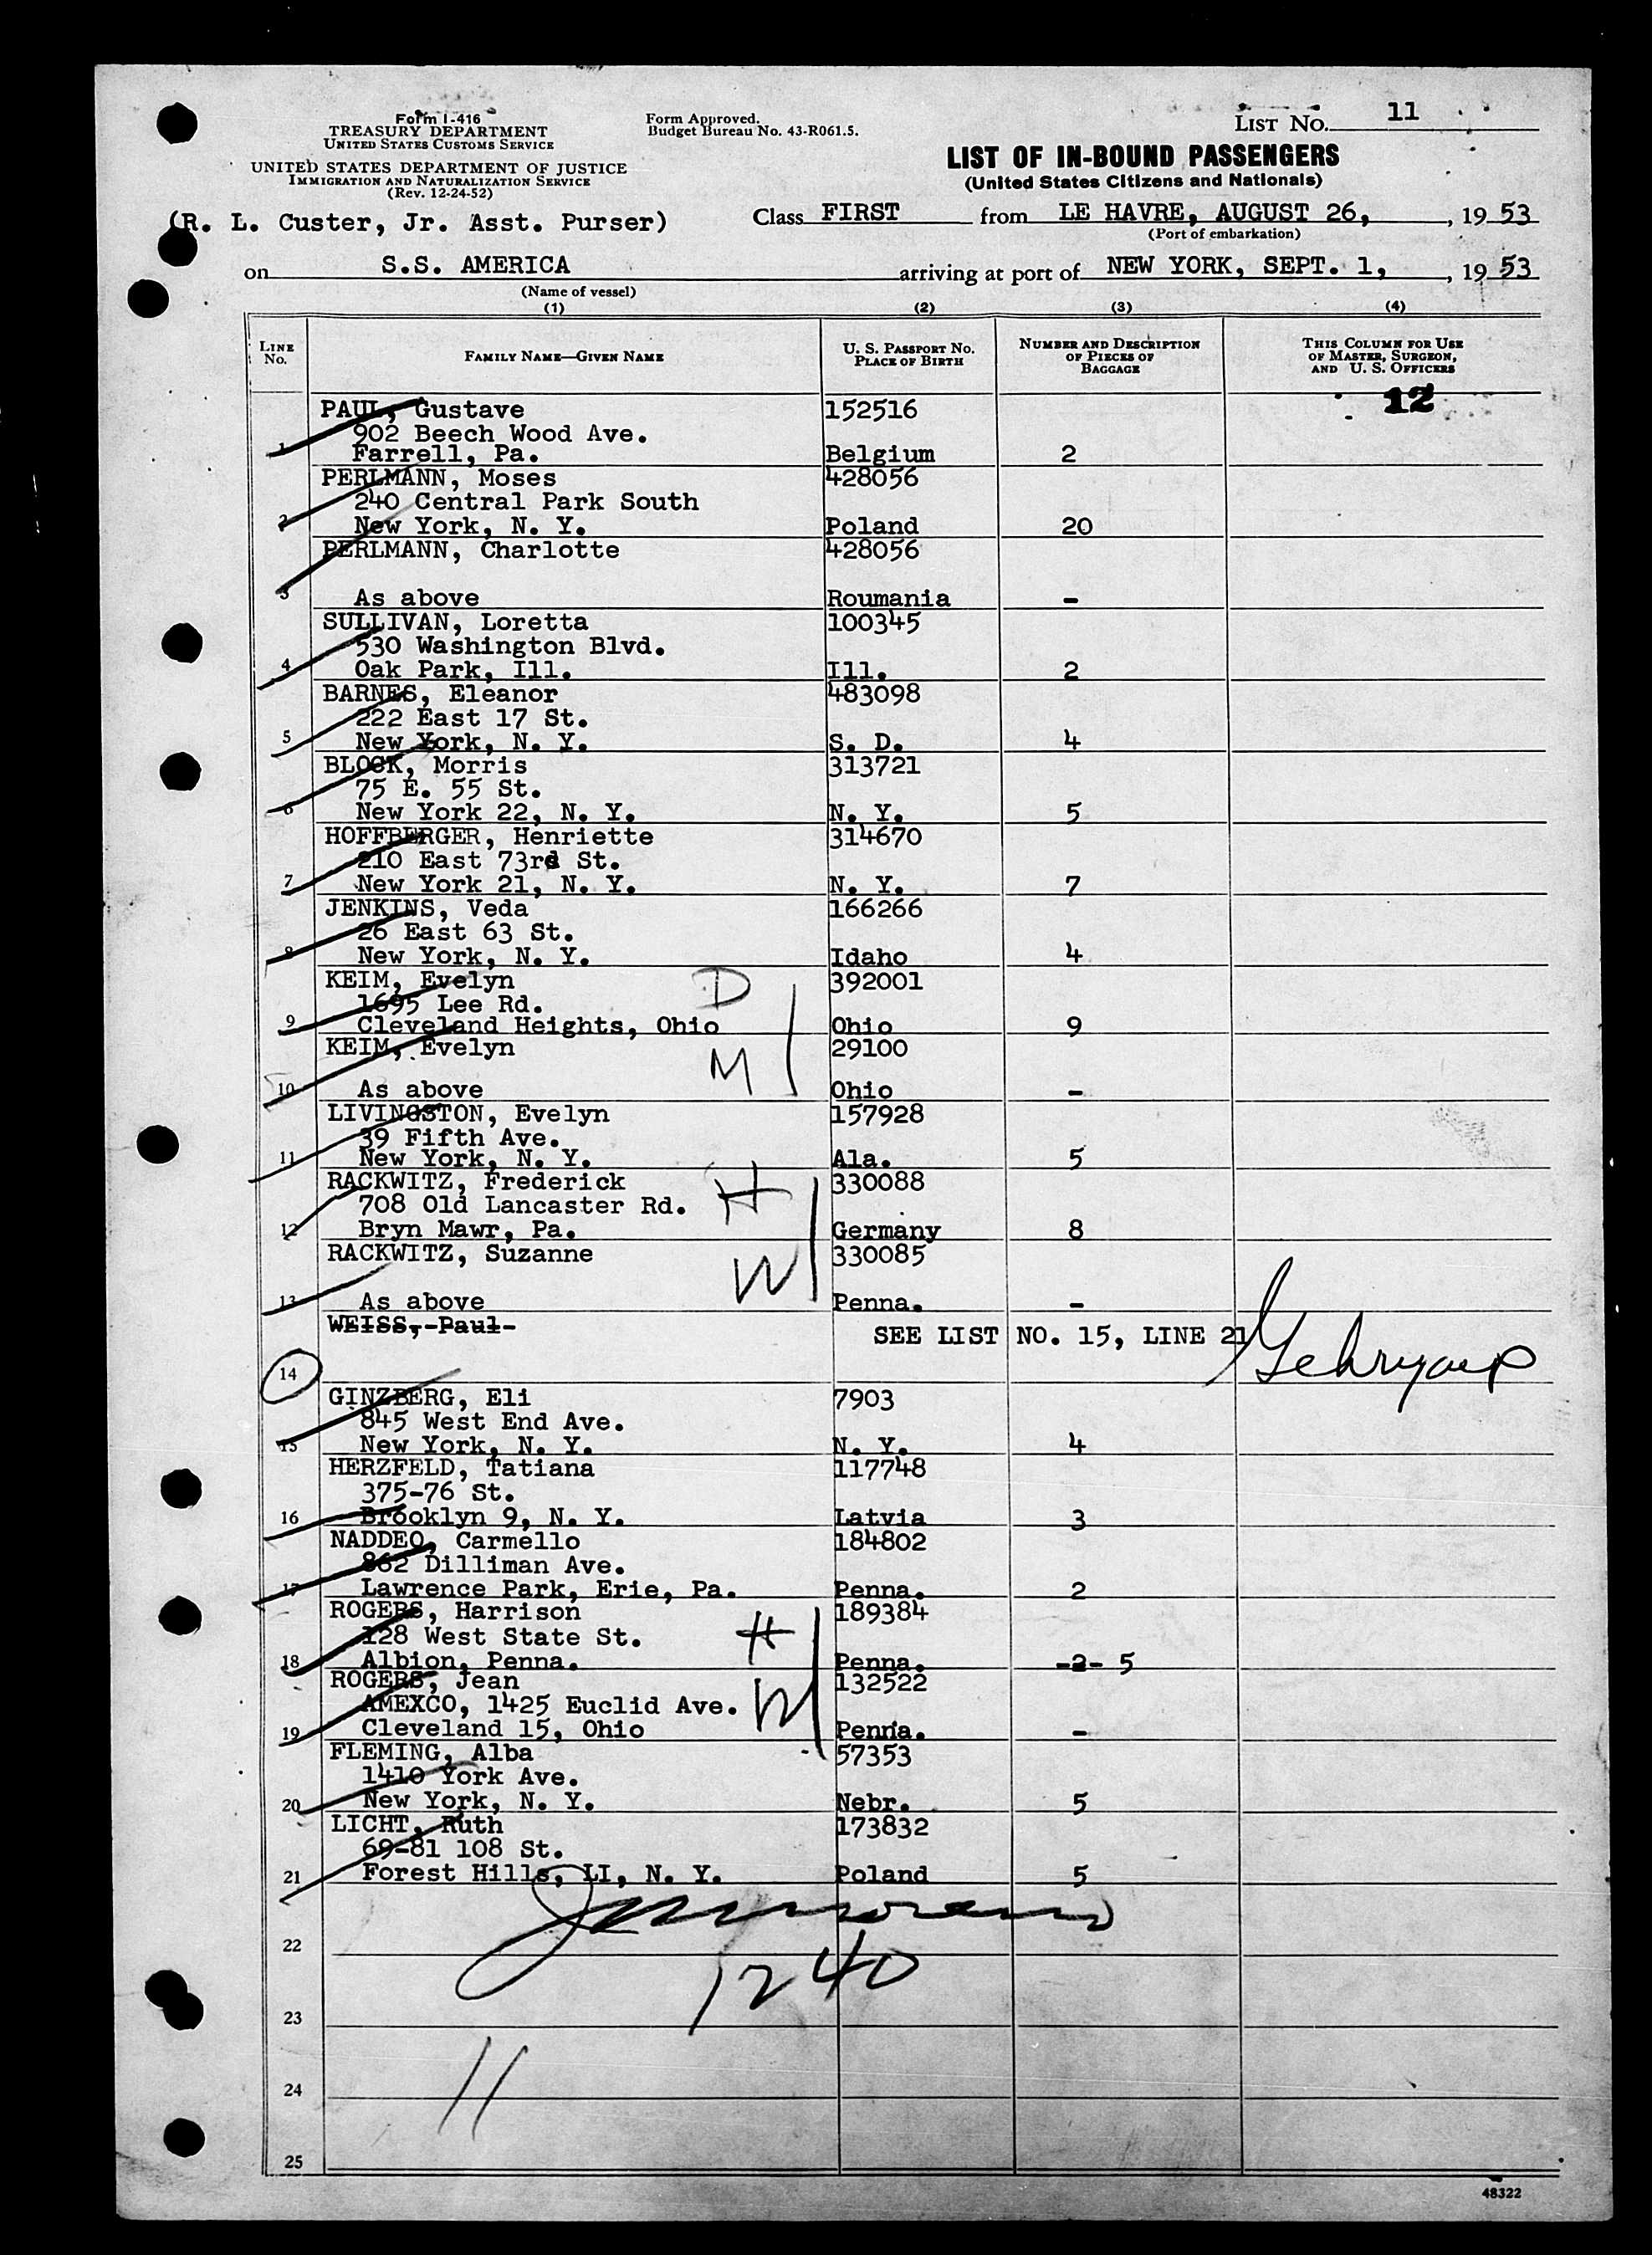 Form I-416
TREASURY DEPARTMENT
UNITED STATES CUSTOMS SERVICE
UNITED STATES DEPARTMENT OF JUSTICE
IMMIGRATION AND NATURALIZATION SERVICE
(Rev. 12-24-52)
Form Approved.
Budget Bureau No. 43-R061.5.
LIST NO. 11
LIST OF IN-BOUND PASSENGERS
(United States Citizens and Nationals)
(R. L. Custer, Jr. Asst. Purser)
Class FIRST from LE HAVRE, AUGUST 26, , 19 53
(Port of embarkation)
on S.S. AMERICA arriving at port of NEW YORK, SEPT. 1, , 19 53
(Name of vessel)
(1) (2) (3) (4)
LINE No. FAMILY NAME—GIVEN NAME U. S. PASSPORT NO. PLACE OF BIRTH NUMBER AND DESCRIPTION OF PIECES OF BAGGAGE THIS COLUMN FOR USE OF MASTER, SURGEON, AND U. S. OFFICERS
12
PAUL, Gustave 152516
902 Beech Wood Ave.
1 Farrell, Pa. Belgium 2
PERLMANN, Moses 428056
240 Central Park South
2 New York, N. Y. Poland 20
PERLMANN, Charlotte 428056
3 As above Roumania -
SULLIVAN, Loretta 100345
530 Washington Blvd.
4 Oak Park, Ill. Ill. 2
BARNES, Eleanor 483098
222 East 17 St.
5 New York, N. Y. S. D. 4
BLOCK, Morris 313721
75 E. 55 St.
6 New York 22, N. Y. N. Y. 5
HOFFBERGER, Henriette 314670
210 East 73rd St.
7 New York 21, N. Y. N. Y. 7
JENKINS, Veda 166266
26 East 63 St.
8 New York, N. Y. Idaho 4
KEIM, Evelyn D 392001
1695 Lee Rd.
9 Cleveland Heights, Ohio Ohio 9
KEIM, Evelyn M 29100
10 As above Ohio -
LIVINGSTON, Evelyn 157928
39 Fifth Ave.
11 New York, N. Y. Ala. 5
RACKWITZ, Frederick H 330088
708 Old Lancaster Rd.
12 Bryn Mawr, Pa. Germany 8
RACKWITZ, Suzanne W 330085
13 As above Penna. -
WEISS, Paul SEE LIST NO. 15, LINE 21
14
GINZBERG, Eli 7903
845 West End Ave.
15 New York, N. Y. N. Y. 4
HERZFELD, Tatiana 117748
375-76 St.
16 Brooklyn 9, N. Y. Latvia 3
NADDEO, Carmello 184802
862 Dilliman Ave.
17 Lawrence Park, Erie, Pa. Penna. 2
ROGERS, Harrison H 189384
128 West State St.
18 Albion, Penna. Penna. -2- 5
ROGERS, Jean W 132522
AMEXCO, 1425 Euclid Ave.
19 Cleveland 15, Ohio Penna. -
FLEMING, Alba 57353
1410 York Ave.
20 New York, N. Y. Nebr. 5
LICHT, Ruth 173832
69-81 108 St.
21 Forest Hills, LI, N. Y. Poland 5
22
1240
23
24
11
25
48322